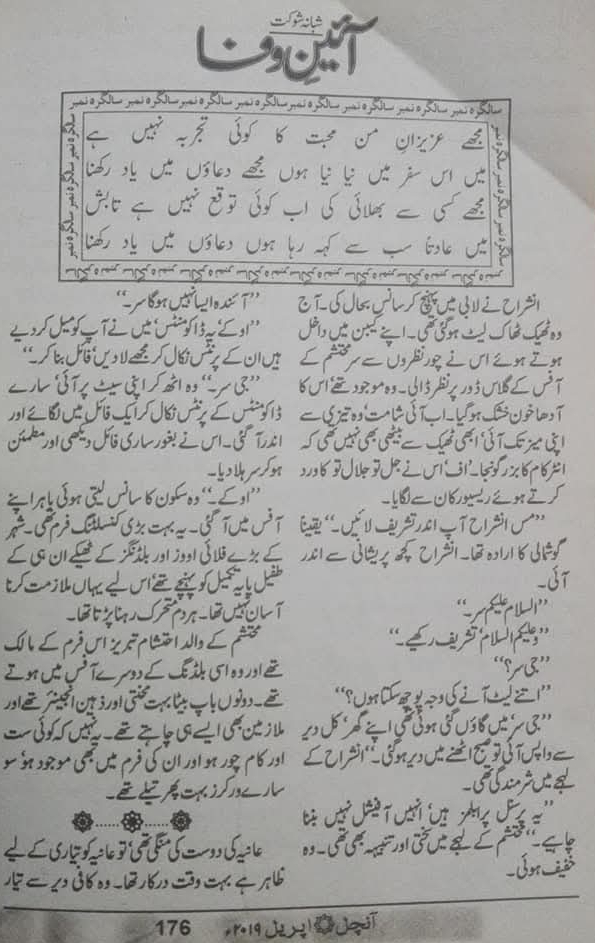 شبانہ شوکت
آئینِ وفا
سالگرہ نمبر سالگرہ نمبر سالگرہ نمبر سالگرہ نمبر سالگرہ نمبر سالگرہ نمبر سالگرہ نمبر سالگرہ نمبر
مجھے عزیزانِ من محبت کا کوئی تجربہ نہیں ہے
میں اس سفر میں نیا نیا ہوں مجھے دعاؤں میں یاد رکھنا
مجھے کسی سے بھلائی کی اب کوئی توقع نہیں ہے تابش
میں عادتاً سب سے کہہ رہا ہوں دعاؤں میں یاد رکھنا
انشراح نے لابی میں پہنچ کر سانس بحال کی۔ آج
وہ ٹھیک ٹھاک لیٹ ہوگئی تھی۔ اپنے کیبن میں داخل
ہوتے ہوئے اس نے چور نظروں سے سر محتشم کے
آفس کے گلاس ڈور پر نظر ڈالی۔ وہ موجود تھے‘ اس کا
آدھا خون خشک ہوگیا۔ اب آئی شامت‘ وہ تیزی سے
اپنی میز تک آئی‘ ابھی ٹھیک سے بیٹھی بھی نہیں تھی کہ
انٹرکام کا بزر گونجا۔ ’اف‘ اس نے جل تو جلال تو کا ورد
کرتے ہوئے ریسیور کان سے لگایا۔
”مس انشراح آپ اندر تشریف لائیں۔“ یقینا
گوشمالی کا ارادہ تھا۔ انشراح کچھ پریشانی سے اندر
آئی۔
”السلام علیکم سر۔“
”وعلیکم السلام‘ تشریف رکھیے۔“
”جی سر؟“
”اتنے لیٹ آنے کی وجہ پوچھ سکتا ہوں؟“
”جی سر‘ میں گاؤں گئی ہوئی تھی اپنے گھر‘ کل دیر
سے واپس آئی تو صبح اٹھنے میں دیر ہوگئی۔“ انشراح کے
لہجے میں شرمندگی تھی۔
”یہ پرسنل پرابلمز ہیں‘ انہیں آفیشل نہیں بننا
چاہیے۔“ محتشم کے لہجے میں سختی اور تنبیہہ بھی تھی۔ وہ
خفیف ہوئی۔
”آئندہ ایسا نہیں ہوگا سر۔“
”اوکے‘ یہ ڈاکومنٹس‘ میں نے آپ کو میل کردیے
ہیں ان کے پرنٹس نکال کر مجھے لادیں‘ فائل بنا کر۔“
”جی سر۔“ وہ اٹھ کر اپنی سیٹ پر آئی‘ سارے
ڈاکومنٹس کے پرنٹس نکال کر ایک فائل میں لگائے اور
اندر آگئی۔ اس نے بغور ساری فائل دیکھی اور مطمئن
ہوکر سر ہلا دیا۔
”اوکے۔“ وہ سکون کا سانس لیتی ہوئی باہر اپنے
آفس میں آگئی۔ یہ بہت بڑی کنسلٹنگ فرم تھی۔ شہر
کے بڑے فلائی اوورز اور بلڈنگز کے ٹھیکے ان ہی کے
طفیل پایہ تکمیل کو پہنچے تھے‘ اس لیے یہاں ملازمت کرنا
آسان نہیں تھا۔ ہر دم متحرک رہنا پڑتا تھا۔
محتشم کے والد احتشام تبریز اس فرم کے مالک
تھے اور وہ اسی بلڈنگ کے دوسرے آفس میں ہوتے
تھے۔ دونوں باپ بیٹا بہت محنتی اور ذہین انجینئر تھے اور
ملازمین بھی ایسے ہی چاہتے تھے۔ یہ نہیں کہ کوئی ست
اور کام چور ہو اور ان کی فرم میں بھی موجود ہو‘ سو
سارے ورکرز بہت پھرتیلے تھے۔
عانیہ کی دوست کی منگنی تھی‘ تو عانیہ کو تیاری کے لیے
ظاہر ہے بہت وقت درکار تھا۔ وہ کافی دیر سے تیار
آنچل اپریل ۲۰۱۹ء 176